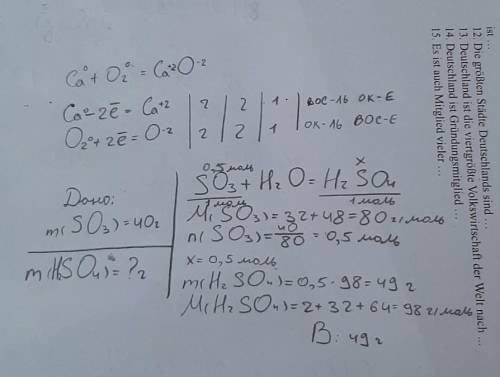 ist ...
12. Die größten Städte Deutschlands sind ...
13. Deutschland ist die viertgrößte Volkswirtschaft der Welt nach ...
14. Deutschland ist Gründungsmitglied ...
15. Es ist auch Mitglied vieler ...
Ca⁰ + O₂⁰ = Ca⁺²O⁻²
Ca⁰ - 2ē = Ca⁺² | 2 | 2 | 1 | вос-ль ок-е
O₂⁰ + 2ē = O⁻² | 2 | 2 | 1 | ок-ль вос-е
Дано:
m(SO₃) = 40г
m(H₂SO₄) = ?г
0,5 моль x
SO₃ + H₂O = H₂SO₄
1 моль 1 моль
M(SO₃) = 32 + 48 = 80 г/моль
n(SO₃) = 40/80 = 0,5 моль
x = 0,5 моль
m(H₂SO₄) = 0,5 · 98 = 49 г
M(H₂SO₄) = 2 + 32 + 64 = 98 г/моль
В: 49 г